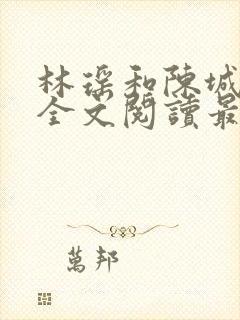 林瑤和陳城
全文閱讀最
萬邦